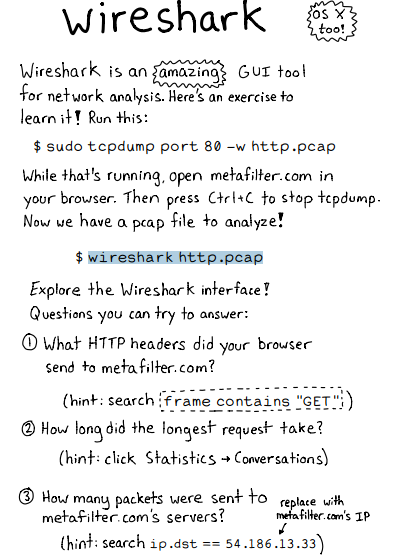 wireshark
OS X
too!
Wireshark is an amazing GUI tool
for network analysis. Here's an exercise to
learn it! Run this:
$ sudo tcpdump port 80 -w http.pcap
While that's running, open metafilter.com in
your browser. Then press Ctrl+C to stop tcpdump.
Now we have a pcap file to analyze!
$ wireshark http.pcap
Explore the Wireshark interface!
Questions you can try to answer:
① What HTTP headers did your browser
send to metafilter.com?
(hint: search frame contains "GET")
② How long did the longest request take?
(hint: click Statistics → Conversations)
③ How many packets were sent to
metafilter.com's servers?
replace with
metafilter.com's IP
(hint: search ip.dst == 54.186.13.33)